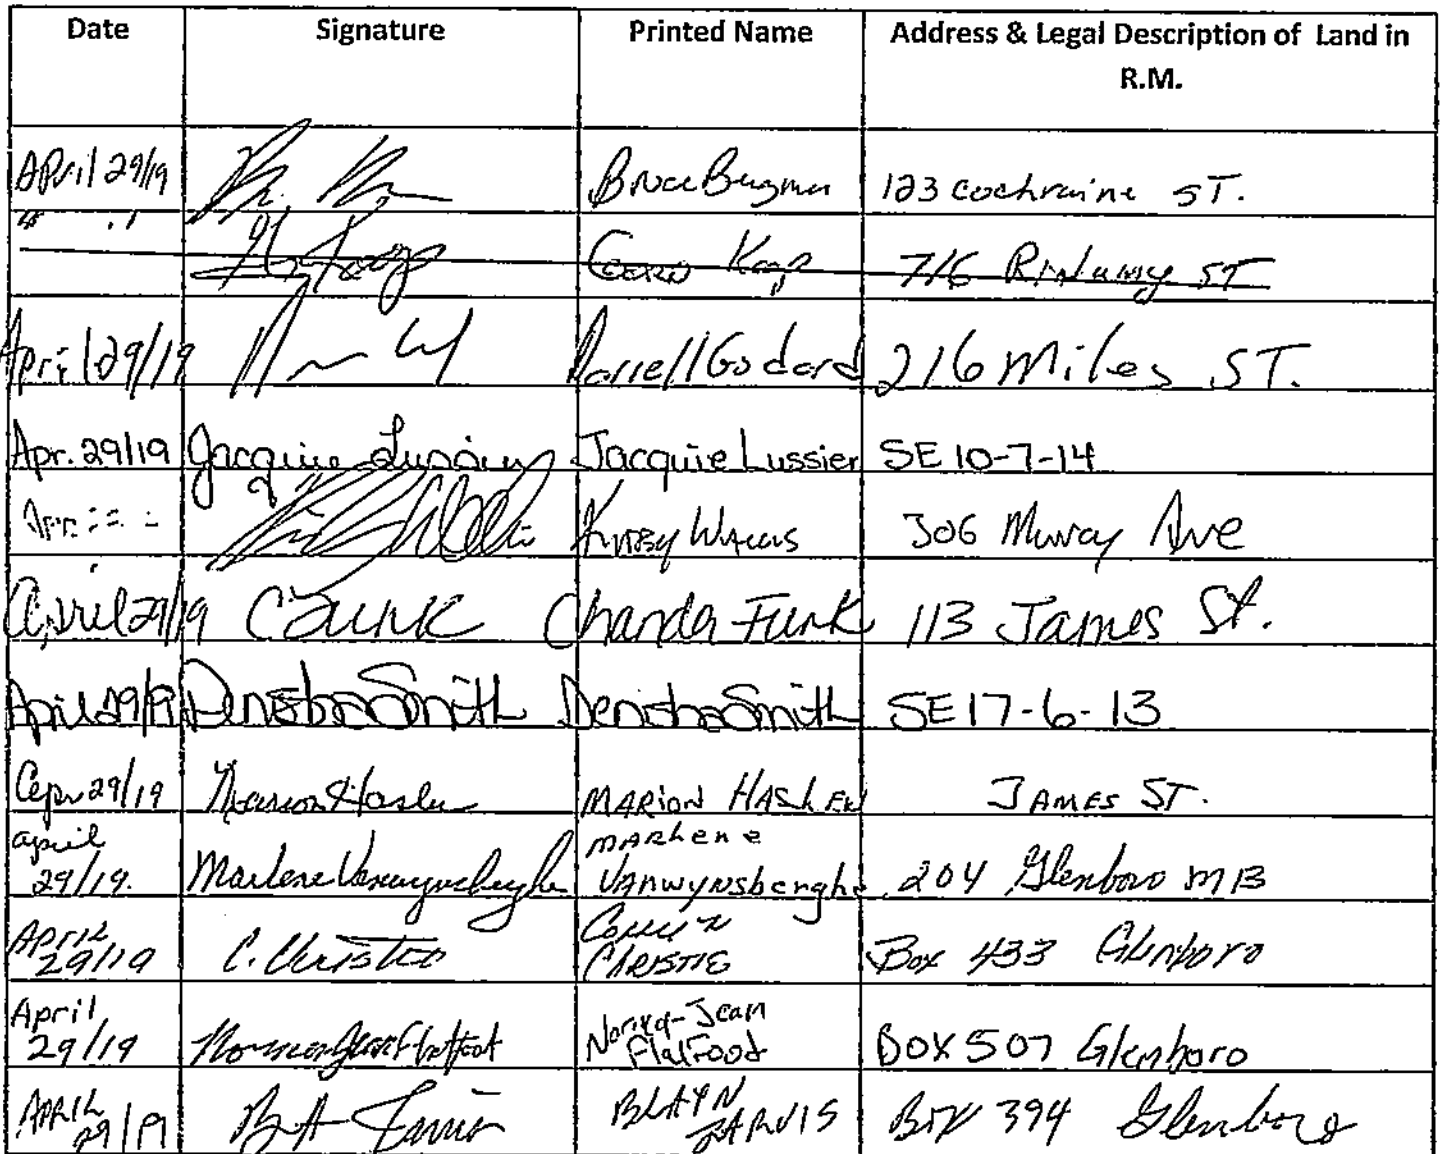 Date Signature Printed Name Address & Legal Description of Land in
R.M.
APril 29/19 Bruce 123 cochraine ST.
" " 716 ST
April 29/19 Darrell Godard 216 Miles ST.
Apr. 29/19 Jacquie Lussier Jacquie Lussier SE 10-7-14
Apr. 306 Murray Ave
April 29/19 C Funk Chanda Funk 113 James St.
April 29/19 Smith Smith SE 17-6-13
Apr 29/19 Marion MARION James ST.
april
29/19. Marlene Vanwynsberghe marlene
Vanwynsberghe 204 Glenboro MB
APRIL
29/19 C. Christie
CHRISTIE Box 433 Glenboro
April
29/19 Norma-Jean
Flatfoot Box 507 Glenboro
APRIL
29/19 Jarvis BLAYN
JARVIS Box 394 Glenboro